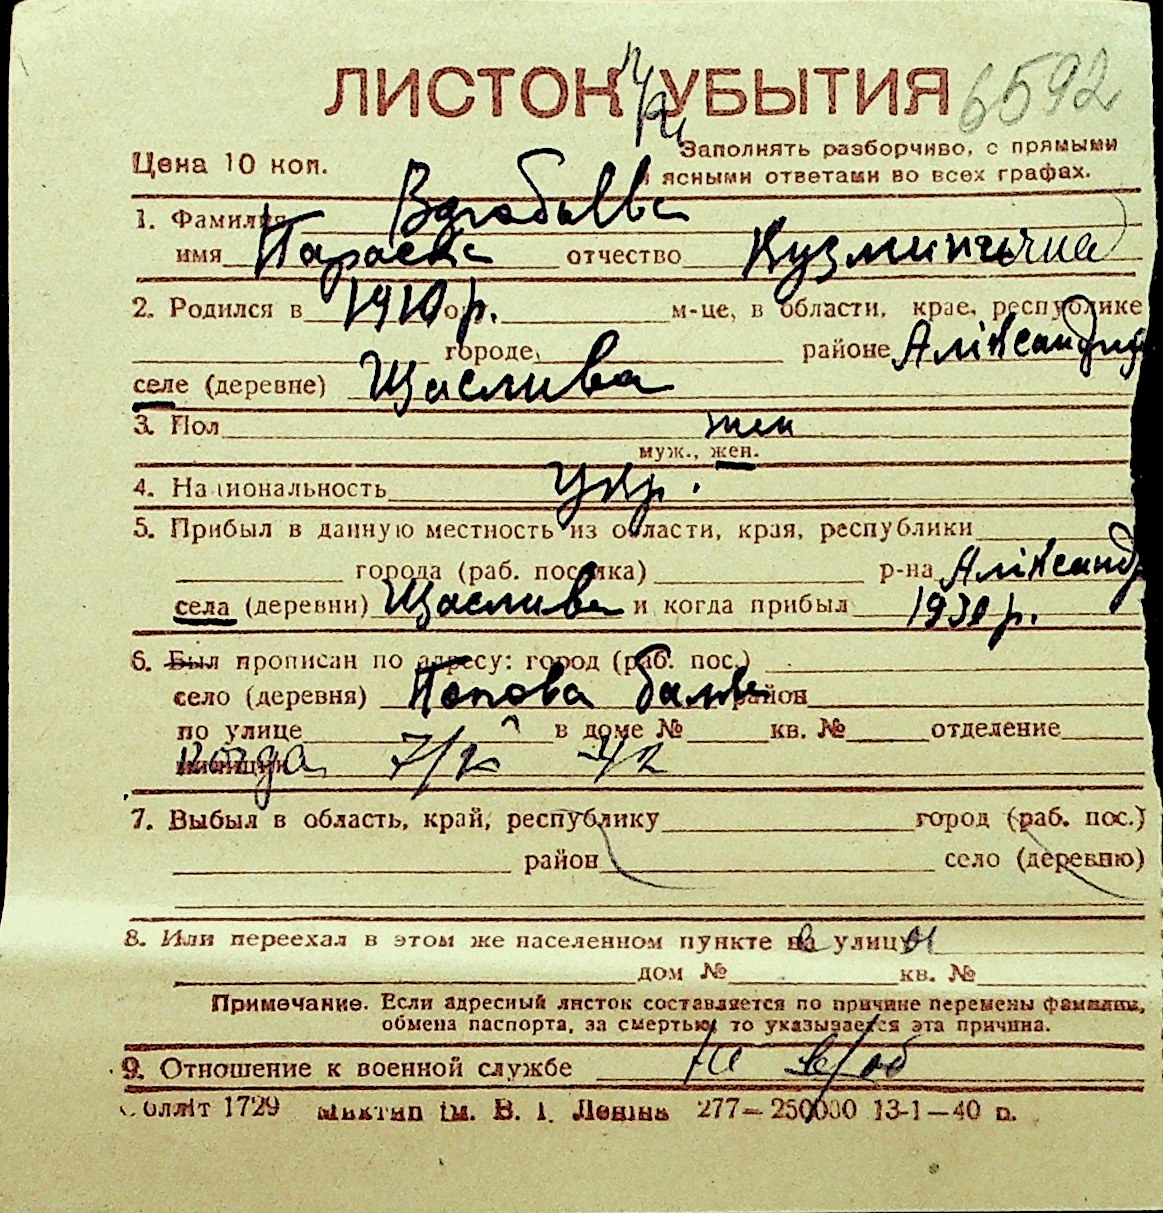 ЛИСТОК УБЫТИЯ 6592
Цена 10 коп.
Заполнять разборчиво, с прямыми
и ясными ответами во всех графах.
1. Фамилия
имя Параска отчество
2. Родился в 1910 р. м-це, в области, крае, республике
городе, районе Аліксандрів
селе (деревне) Щаслива
3. Пол жен
муж., жен.
4. Национальность Укр.
5. Прибыл в данную местность из области, края, республики
города (раб. поселка) р-на Аліксанд
села (деревни) Щаслива и когда прибыл 1930 р.
6. Был прописан по адресу: город (раб. пос.)
село (деревня) Попова балка район
по улице в доме № кв. № отделение
милиции когда
7. Выбыл в область, край, республику город (раб. пос.)
район село (деревню)
8. Или переехал в этом же населенном пункте на улицу
дом № кв. №
Примечание. Если адресный листок составляется по причине перемены фамилии,
обмена паспорта, за смертью, то указывается эта причина.
9. Отношение к военной службе не в/об
Облліт 1729 ім. В. І. Леніна 277—250000 13-1—40 п.